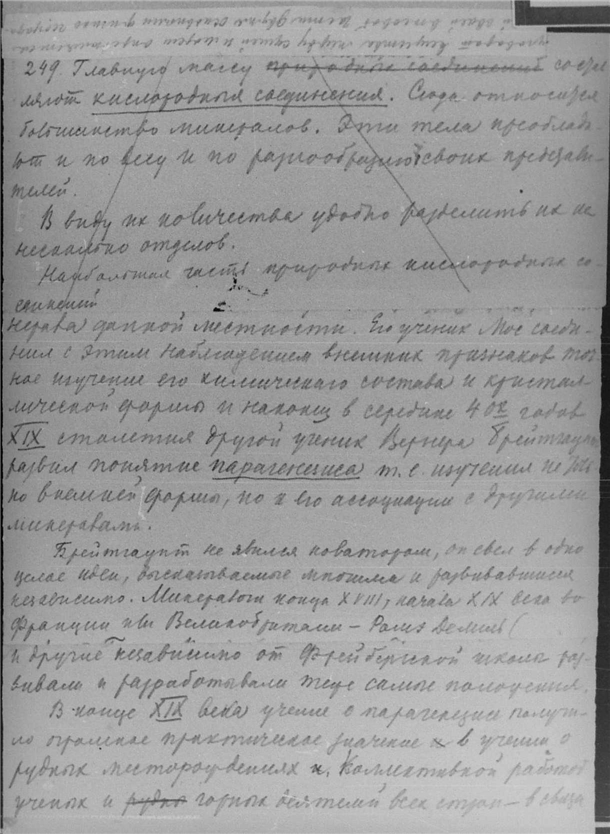 249. Главную массу природных соединений состав
ляют кислородныя соединения. Сюда относится
большинство минералов. Эти тела преоблада-
ют и по весу и по разнообразию своих представи-
телей.
В виду их количества удобно разделить их на
несколько отделов.
Наибольшая часть природных кислородных со-
единений
нерала данной местности. Его ученик Моос соеди-
нил с этим наблюдением внешних признаков точ
ное изучение его химического состава и кристал-
лической формы и наконец в середине 40х годов
XIX столетия другой ученик Вернера Брейтгаупт
развил понятие парагенезиса т.е. изучения не
но внешней формы, но и его ассоциации с другими
минералами.
Брейтгаупт не явился новатором, он свел в одно
целое идеи, высказываемые многими и развивавшиеся
независимо. Минералоги конца XVIII, начала XIX века во
Франции или Великобритании – Ромэ Делиль (
и другие независимо от Фрейбергской школы раз
вивали и разрабатывали теже самые положения.
В конце XIX века учение о парагенезисе получи-
ло огромное практическое значение в учении о
рудных месторождениях и. Коллективной работой
ученых и рудно горных деятелей всех стран – в связи